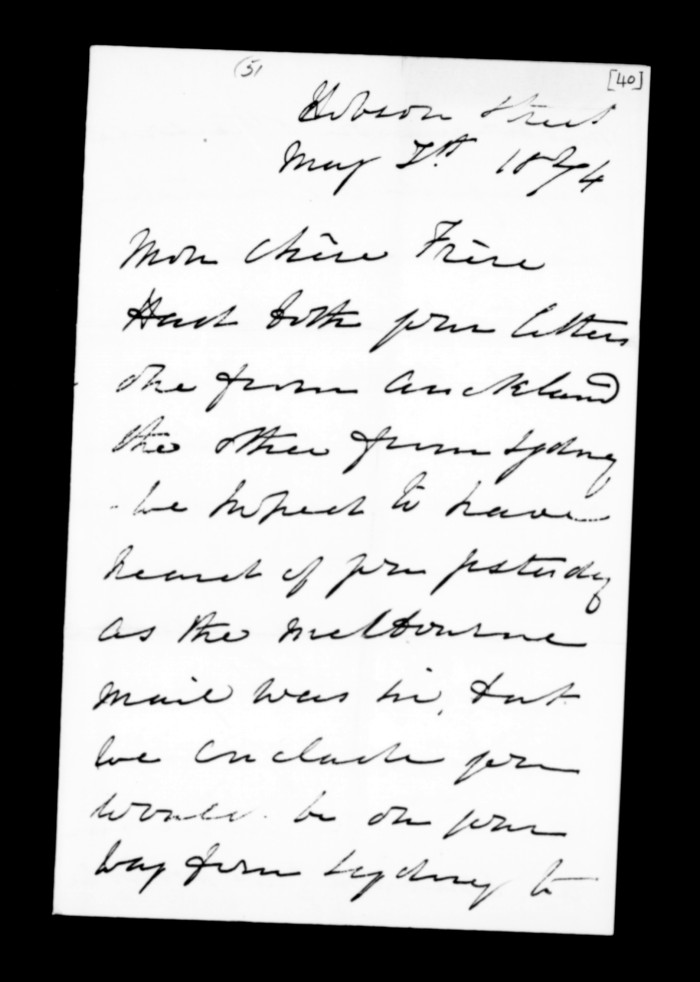 (5)
[40]
Hobson Street
May 7th 1874
Mon Chère Frère
Had both your letters
one from Auckland
the other from Sydney
- we hoped to have
heard of you yesterday
as the Melbourne
mail was in, but
we conclude you
would be on your
way from Sydney to